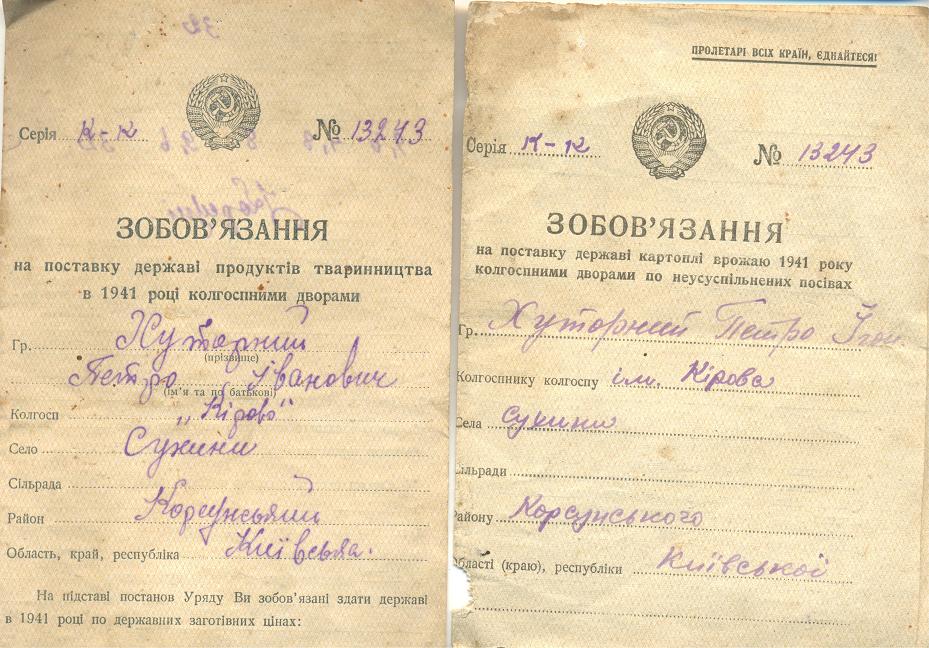 32
Серія К-К № 13243
ЗОБОВ'ЯЗАННЯ
на поставку державі продуктів тваринництва
в 1941 році колгоспними дворами
Гр. Хуторний
(прізвище)
Петро Іванович
(ім'я та по батькові)
Колгосп „Кірова"
Село Сухини
Сільрада
Район Корсунський
Область, край, республіка Київська.
На підставі постанов Уряду Ви зобов'язані здати державі
в 1941 році по державних заготівних цінах:
ПРОЛЕТАРІ ВСІХ КРАЇН, ЄДНАЙТЕСЯ!
Серія К-К № 13243
ЗОБОВ'ЯЗАННЯ
на поставку державі картоплі врожаю 1941 року
колгоспними дворами по неусуспільнених посівах
Гр. Хуторний Петро
Колгоспнику колгоспу ім. Кірова
Села Сухини
Сільради
Району Корсунського
Області (краю), республіки Київської